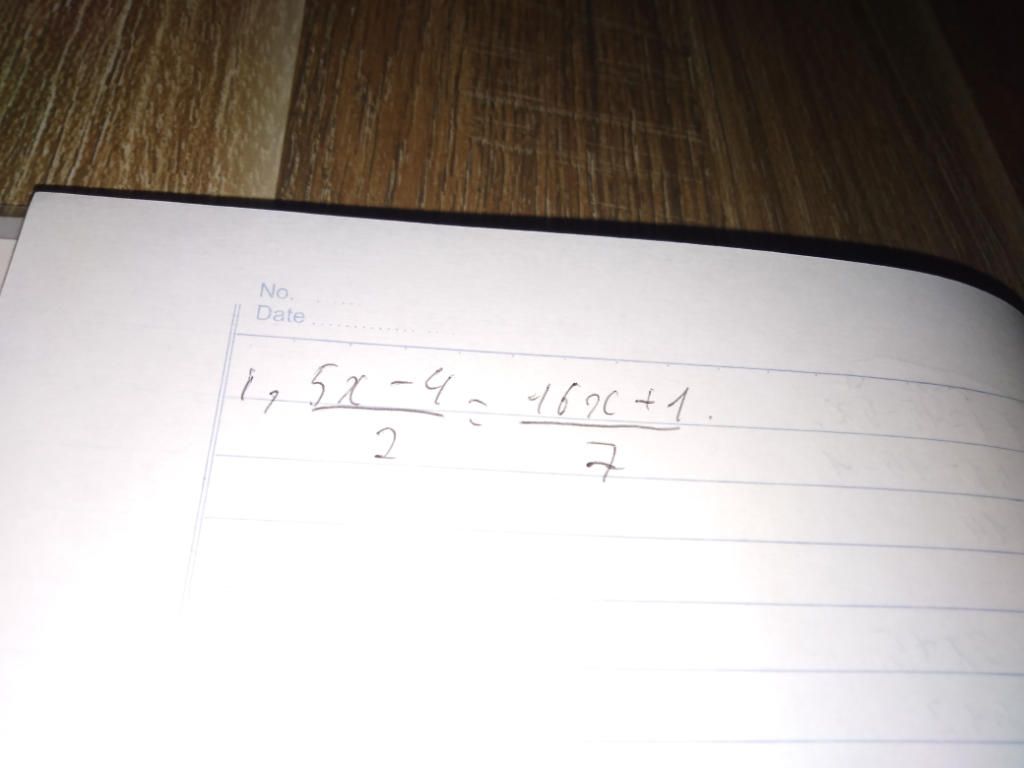 No.
Date
1, 5x - 4 = 16x + 1.
2 7